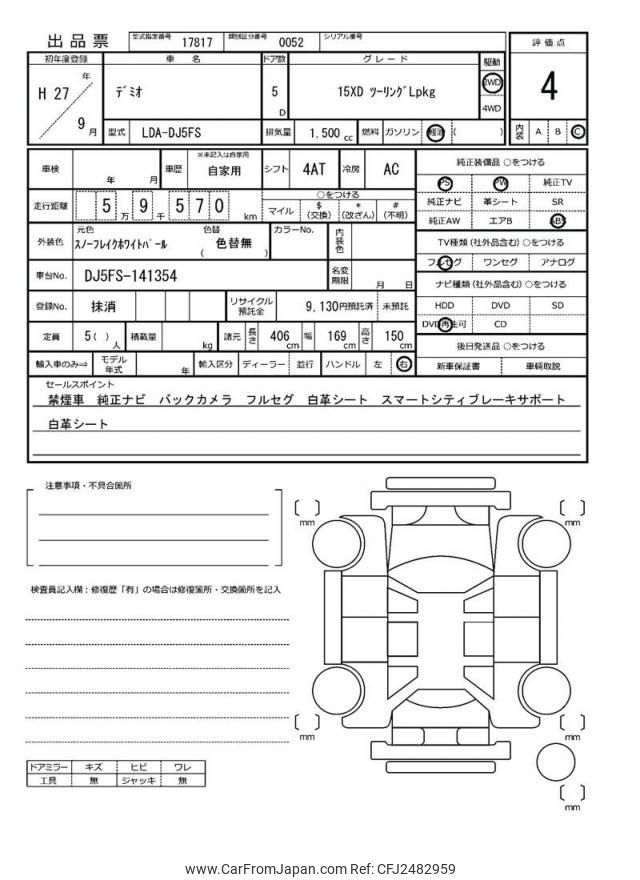 出品票 型式指定番号 17817 類別区分番号 0052 シリアル番号
初年度登録 車 名 ドア数 グレード 駆動 評価点
H 27 年 9 月 デミオ 5 D 15XD ツーリングLpkg 2WD 4WD 4
型式 LDA-DJ5FS 排気量 1,500 cc 燃料 ガソリン 軽油 ( ) 内装 A B C
車検 年 月 車歴 ※未記入は自家用 自家用 シフト 4AT 冷房 AC 純正装備品 ○をつける
PS PW 純正TV
走行距離 5 万 9 千 5 7 0 km ○をつける マイル $ (交換) * (改ざん) # (不明) 純正ナビ 革シート SR
純正AW エアB ABS
外装色 元色 スノーフレイクホワイトパール 色替 ( 色替無 ) カラーNo. 内装色 TV種類 (社外品含む) ○をつける
フルセグ ワンセグ アナログ
車台No. DJ5FS-141354 名変期限 月 日 ナビ種類 (社外品含む) ○をつける
登録No. 抹消 リサイクル預託金 9,130円預託済 未預託 HDD DVD SD
DVD再生可 CD
定員 5 ( ) 人 積載量 kg 諸元 長さ 406 cm 幅 169 cm 高さ 150 cm 後日発送品 ○をつける
輸入車のみ⇒ モデル年式 年 輸入区分 ディーラー 並行 ハンドル 左 右 新車保証書 車輌取説
セールスポイント
禁煙車 純正ナビ バックカメラ フルセグ 白革シート スマートシティブレーキサポート
白革シート
注意事項・不具合箇所
mm mm
検査員記入欄：修復歴「有」の場合は修復箇所・交換箇所を記入
mm mm
ドアミラー キズ ヒビ ワレ
工具 無 ジャッキ 無
mm
www.CarFromJapan.com Ref: CFJ2482959